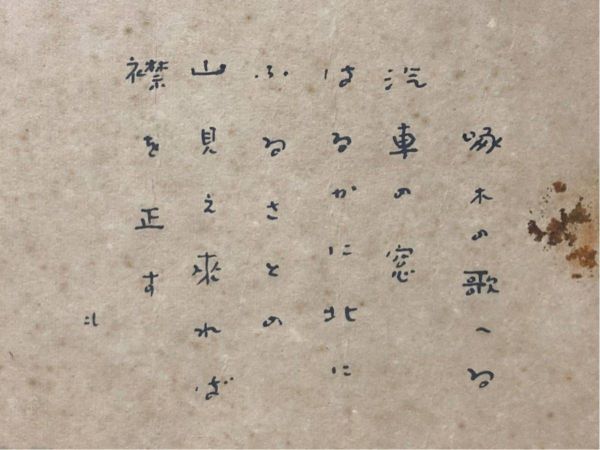 啄木の歌へる
汽車の窓
はるかに北に
ふるさとの
山見え來れば
襟を正す